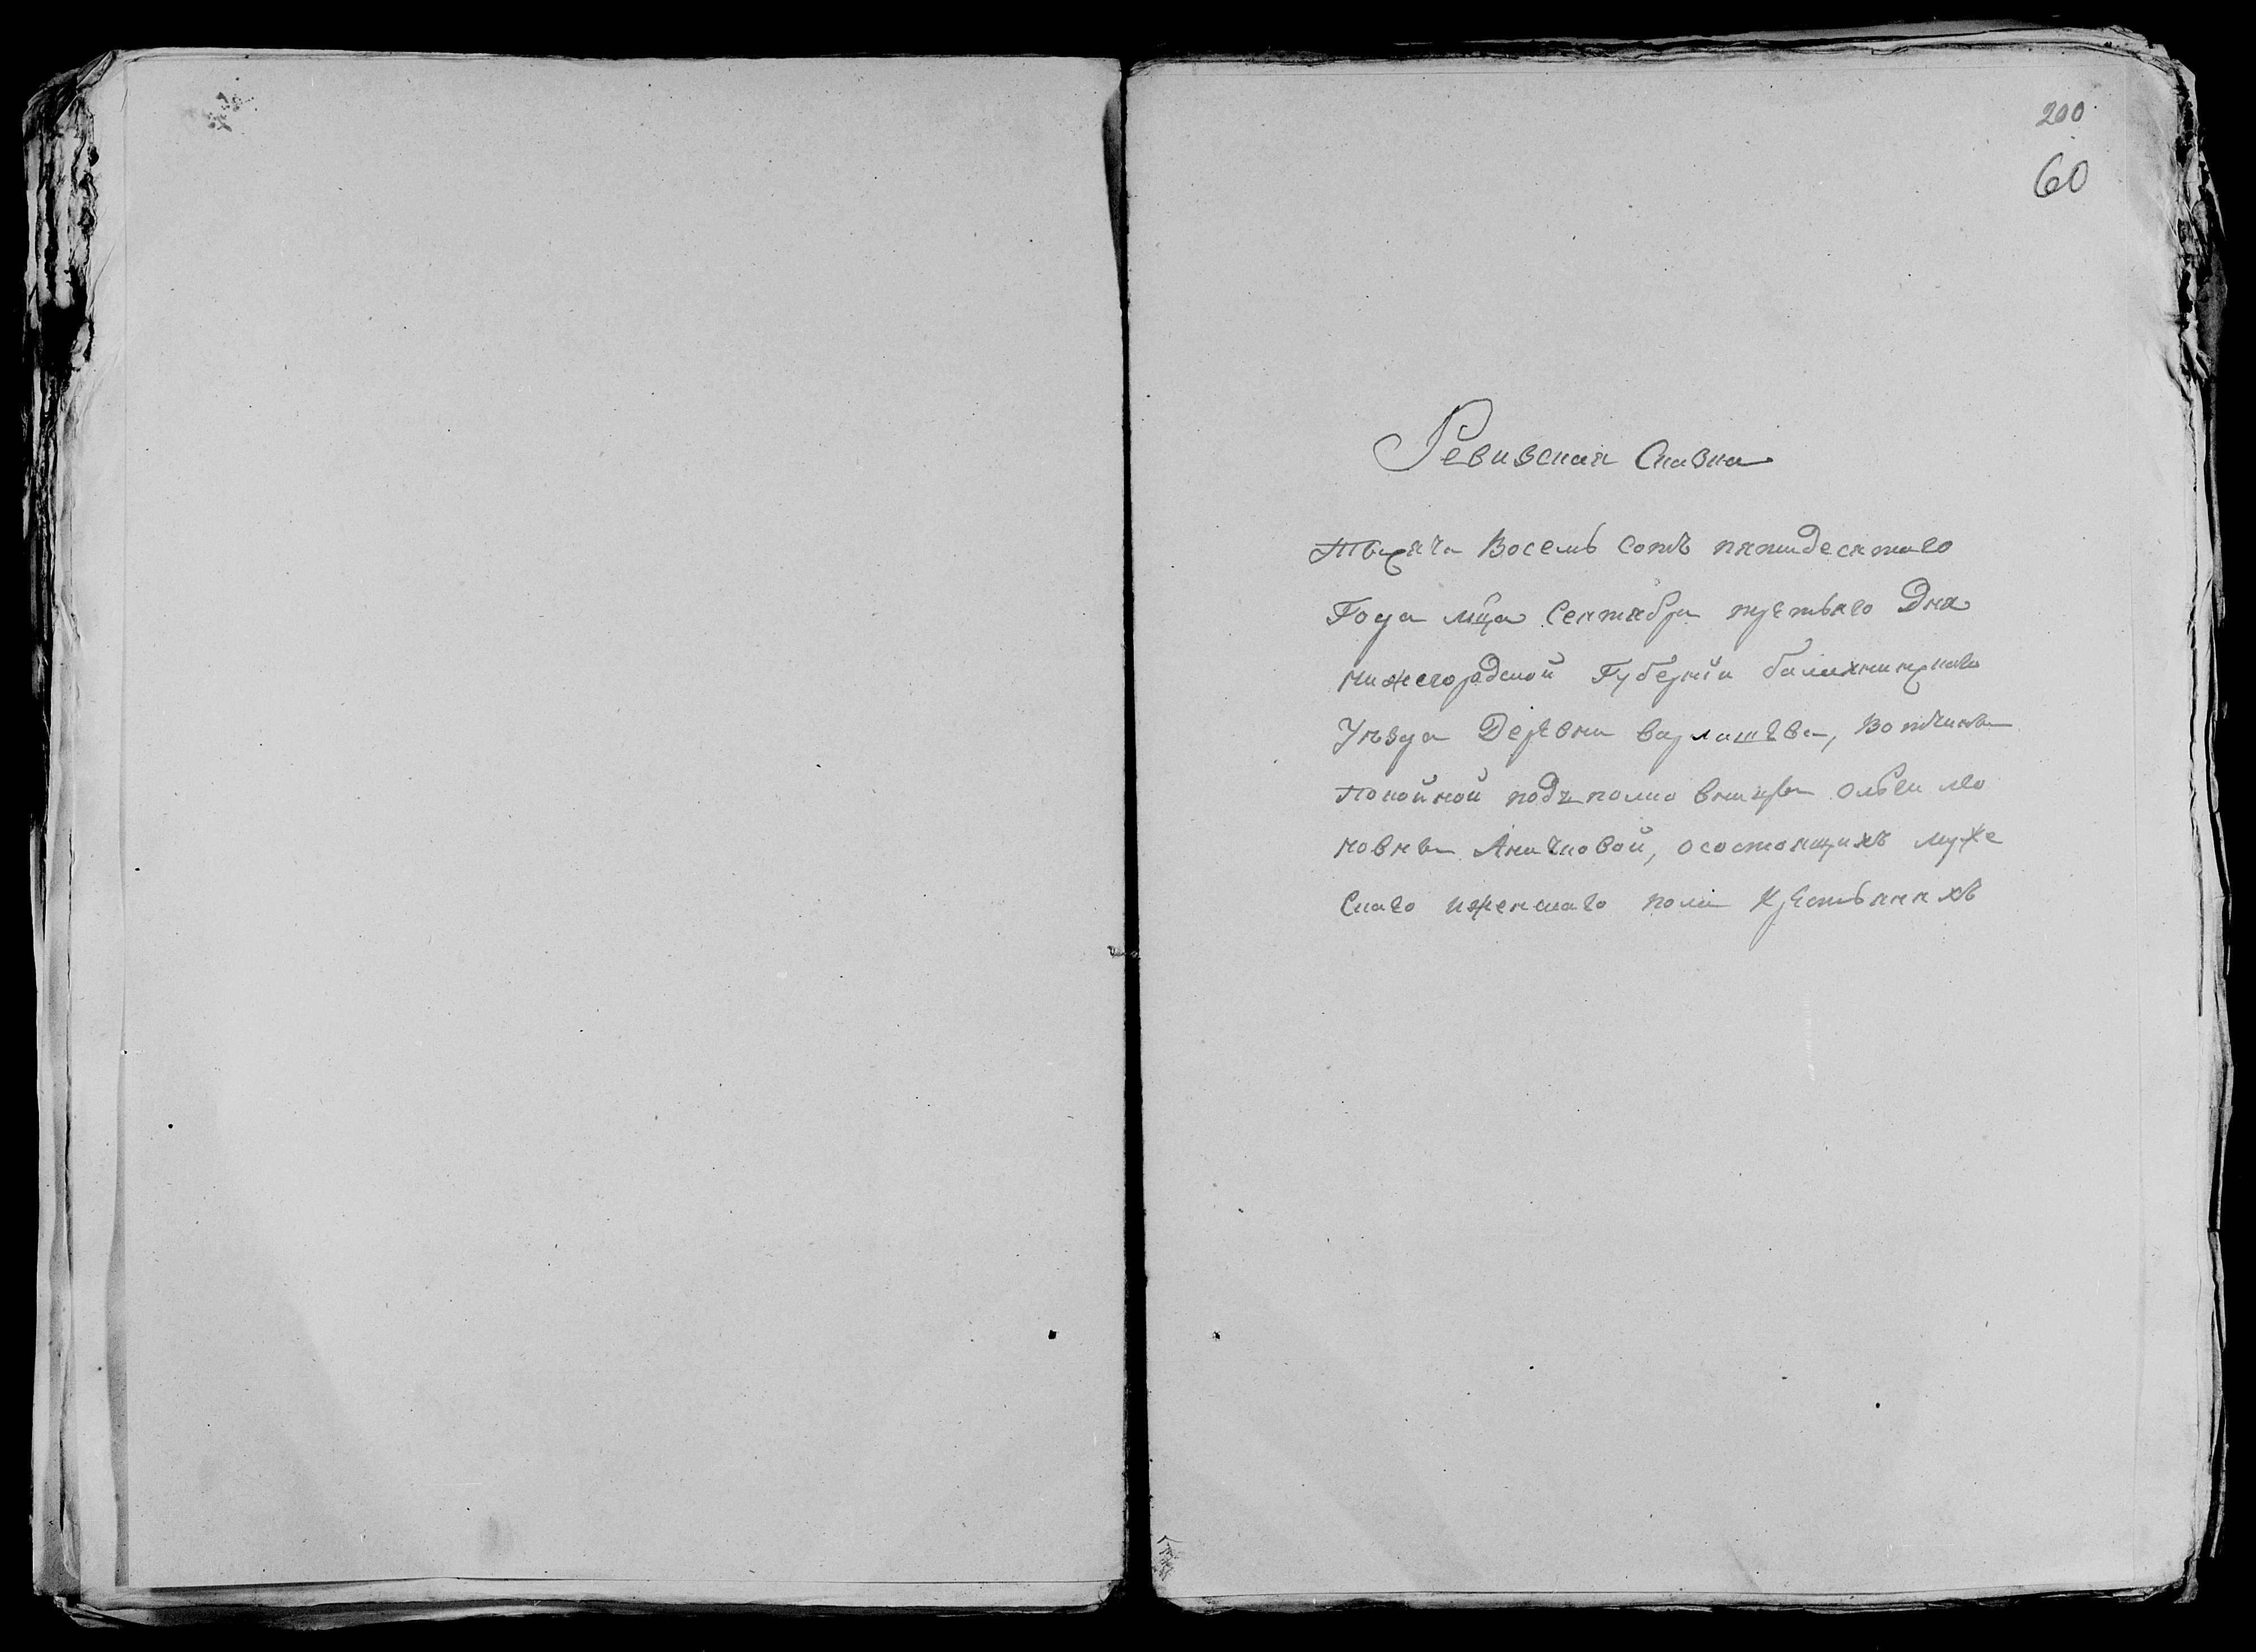 200
60
Ревизская Сказка
Тысяча Восемь сотъ пятидесятаго
Года мца Сентября третьяго Дня
нижегородской Губерніи балахнинскаго
Уѣзда Деревни Варлашева, Вотчины
покойной подъполковницы ольги ле
новны Аничковой, осостоящихъ муже
скаго иженскаго пола Крестьянахъ